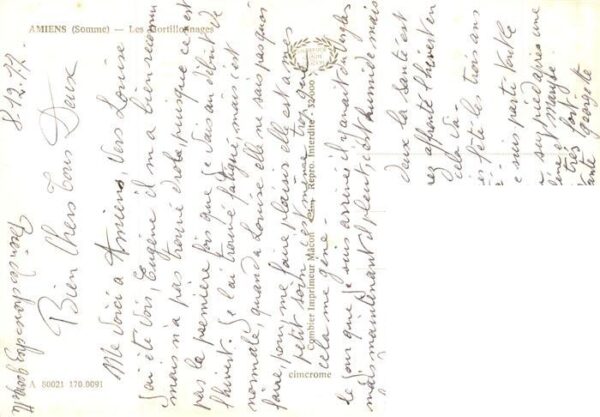 AMIENS (Somme) — Les Hortillonnages
8.12.77.
Bien Chers Tous Deux
Me voici à Amiens, vers Louise
j'ai été voir, Eugène il m'a bien reconnu
mais n'a pas trouvé drôle, puisque ce n'est
pas la première fois que je vais au début de
l'hiver. Je l'ai trouvé fatigué, mais c'est
normale, quand à Louise elle ne sait pas quoi
faire pour me faire plaisir elle est aux
petit soin, c'est même trop que
cela me gène.
le jour que je suis arrivée il y avait du verglas
mais maintenant il pleut, c'est humide mais
deux la santé est
affronté l'hiver en
cela va.
fêté les trois ans
suis partie toute
sur pied après une
très fort
Georgette
Combier Imprimeur Mâcon
Repro. Interdite
cimcrome
A 80021 170.0091